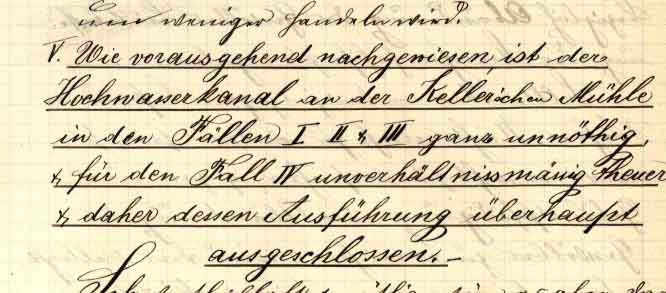 um weniger handeln wird?
V. Wie vorausgehend nachgewiesen, ist der
Hochwasserkanal an der Keller'schen Mühle
in den Fällen I II & III ganz unnöthig,
& für den Fall IV unverhältnissmäsig theuer
& daher dessen Ausführung überhaupt
ausgeschlossen. –